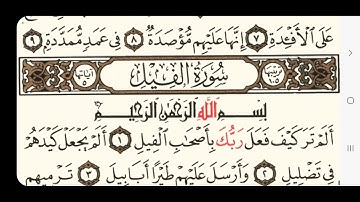 عَلَى الْأَفْـِٔدَةِ ٧ إِنَّهَا عَلَيْهِم مُّؤْصَدَةٌ ٨ فِي عَمَدٍ مُّمَدَّدَةٍ ٩
ترتيبها ١٠٥ سُورَةُ الْفِيلِ آياتها ٥
بِسْمِ اللَّهِ الرَّحْمَٰنِ الرَّحِيمِ
أَلَمْ تَرَ كَيْفَ فَعَلَ رَبُّكَ بِأَصْحَابِ الْفِيلِ ١ أَلَمْ يَجْعَلْ كَيْدَهُمْ
فِي تَضْلِيلٍ ٢ وَأَرْسَلَ عَلَيْهِمْ طَيْرًا أَبَابِيلَ ٣ تَرْمِيهِم